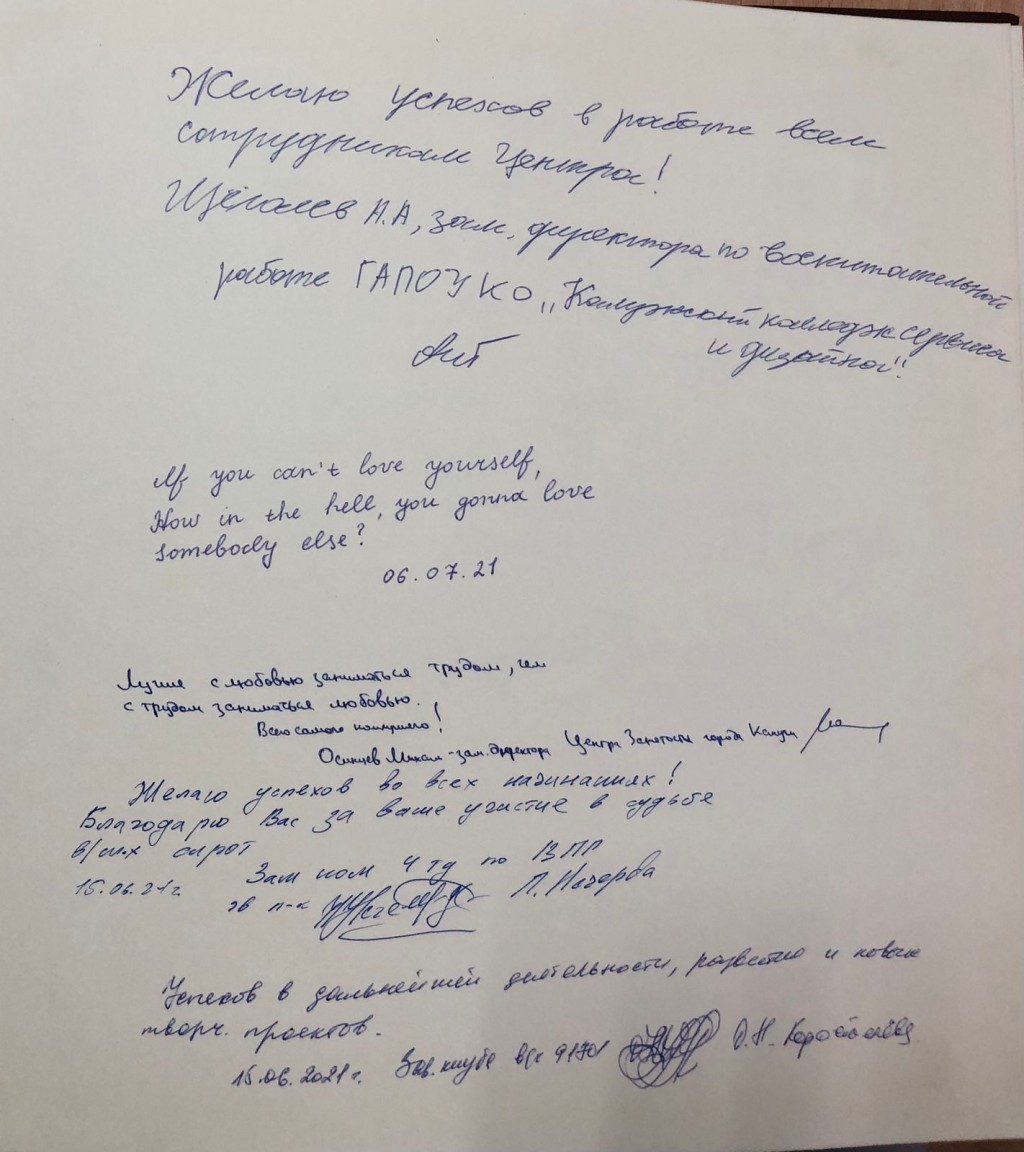 Желаю успехов в работе всем
сотрудникам Центра!
Щёголев А.А, зам. директора по воспитательной
работе ГАПОУ КО „Калужский колледж сервиса
и дизайна".
If you can't love yourself,
How in the hell, you gonna love
somebody else?
06.07.21
Лучше с любовью заниматься трудом, чем
с трудом заниматься любовью.
Всего самого наилучшего!
Осинцев Михаил - зам. директора Центра Занятости города Калуги
Желаю успехов во всех начинаниях!
Благодарю Вас за ваше участие в судьбе
в/сл-х сирот
Зам ком 4 тд по ВПР
15.06.21г. гв п-к
Успехов в дальнейшей деятельности, развитию и новых
творч. проектов.
15.06.2021г. Зав. клуба в/ч 91701 О.Н. Коростелёва